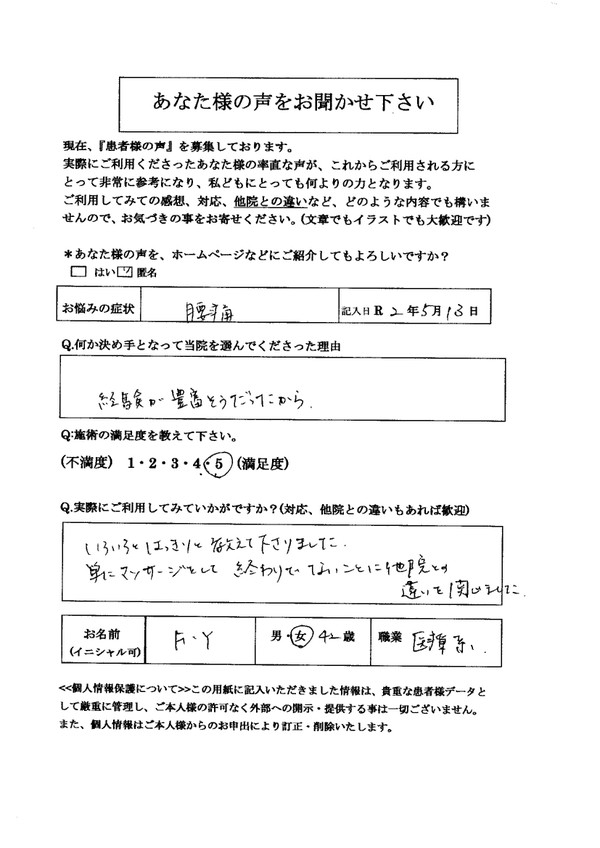 あなた様の声をお聞かせ下さい
現在、『患者様の声』を募集しております。
実際にご利用くださったあなた様の率直な声が、これからご利用される方に
とって非常に参考になり、私どもにとっても何よりの力となります。
ご利用してみての感想、対応、他院との違いなど、どのような内容でも構いま
せんので、お気づきの事をお寄せください。(文章でもイラストでも大歓迎です)
*あなた様の声を、ホームページなどにご紹介してもよろしいですか?
□ はい ☑ 匿名
お悩みの症状 腰痛 記入日 R 2 年 5 月 13 日
Q.何か決め手となって当院を選んでくださった理由
経験が豊富そうだったから.
Q:施術の満足度を教えて下さい。
(不満度) 1・2・3・4・5 (満足度)
Q.実際にご利用してみていかがですか?(対応、他院との違いもあれば歓迎)
いろいろとはっきりと教えて下さりました.
単にマッサージをして 終わりでないことに他院との
違いを感じました.
お名前 (イニシャル可) F・Y 男・女 42 歳 職業 医療系
<<個人情報保護について>>この用紙に記入いただきました情報は、貴重な患者様データと
して厳重に管理し、ご本人様の許可なく外部への開示・提供する事は一切ございません。
また、個人情報はご本人様からのお申出により訂正・削除いたします。